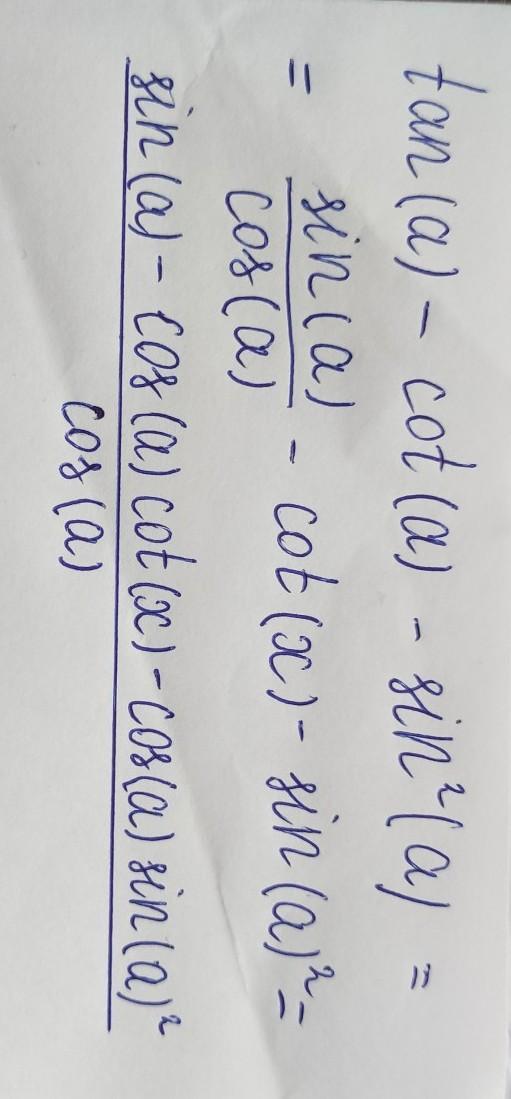 tan(a) - cot(a) - sin²(a) =
= sin(a)/cos(a) - cot(x) - sin(a)² =
sin(a) - cos(a)cot(x) - cos(a)sin(a)²
cos(a)